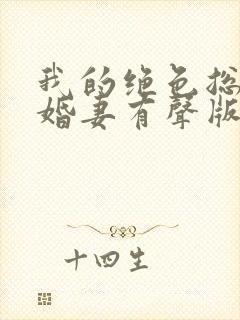 我的绝色总
婚妻有聲版
十四生